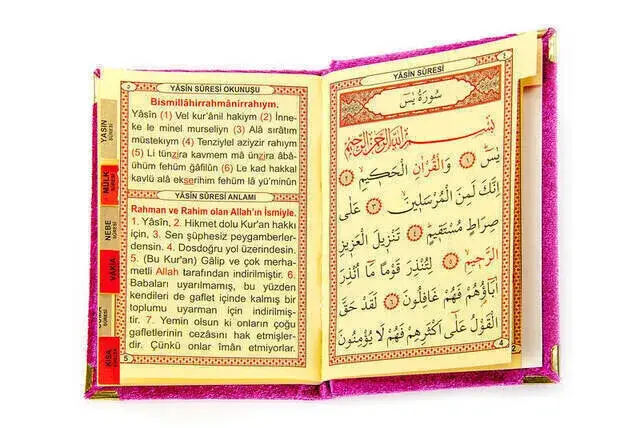 YÂSİN SÛRESİ OKUNUŞU
Bismillâhirrahmânirrahıym.
Yâsîn (1) Vel kur'ânil hakiym (2) İnne-
ke le minel murseliyn (3) Alâ sırâtım
müstekıym (4) Tenziylel aziyzir rahıym
(5) Li tünzira kavmem mâ ünzira âbâ-
ühüm fehüm gâfilûn (6) Le kad hakkal
kavlü alâ ekserihim fehüm lâ yü'minûn
YÂSİN SÛRESİ ANLAMI
Rahman ve Rahim olan Allah'ın İsmiyle.
1. Yâsîn, 2. Hikmet dolu Kur'an hakkı
için, 3. Sen şüphesiz peygamberler-
densin. 4. Dosdoğru yol üzerindesin.
5. (Bu Kur'an) Gâlip ve çok merha-
metli Allah tarafından indirilmiştir. 6.
Babaları uyarılmamış, bu yüzden
kendileri de gaflet içinde kalmış bir
toplumu uyarman için indirilmiş-
tir. 7. Yemin olsun ki onların çoğu
gafletlerinin cezasını hak etmişler-
dir. Çünkü onlar îman etmiyorlar.
5
YASİN
SÛRESİ
MÜLK
SÛRESİ
NEBE
SÛRESİ
VAKIA
SÛRESİ
SÛRESİ
KISA
YÂSİN SÛRESİ
سُورَةُ يٰسٓ
بِسْمِ اللّٰهِ الرَّحْمٰنِ الرَّحِيمِ
يٰسٓ ﴿١﴾ وَالْقُرْاٰنِ الْحَكِيمِ ﴿٢﴾
اِنَّكَ لَمِنَ الْمُرْسَلِينَ ﴿٣﴾ عَلٰى
صِرَاطٍ مُسْتَقِيمٍ ﴿٤﴾ تَنْزِيلَ الْعَزِيزِ
الرَّحِيمِ ﴿٥﴾ لِتُنْذِرَ قَوْمًا مَٓا اُنْذِرَ
اٰبَٓاؤُهُمْ فَهُمْ غَافِلُونَ ﴿٦﴾ لَقَدْ حَقَّ
الْقَوْلُ عَلٰٓى اَكْثَرِهِمْ فَهُمْ لَا يُؤْمِنُونَ
4
2